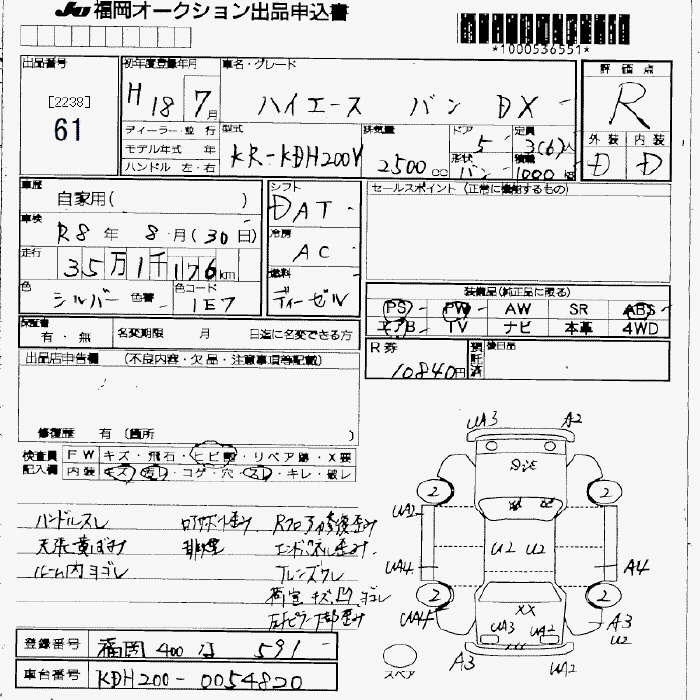 JU 福岡オークション出品申込書
*1000536551*
出品番号
[2238]
61
初年度登録年月
H 18 7月
車名・グレード
ハイエース バン DX
評価点
R
ディーラー・並行
モデル年式 年
ハンドル 左・右
型式
KR-KDH200V
排気量
2500cc
ドア
5
形状
バン
定員
3(6)人
積載
1000kg
外装 内装
D D
車歴
自家用( )
車検
R8年 8月(30日)
走行
35万1千176km
色
シルバー 色番
色コード
1E7
シフト
DAT
冷房
AC
燃料
ディーゼル
セールスポイント (正常に機能するもの)
装備品(純正品に限る)
PS PW AW SR ABS
エアB TV ナビ 本革 4WD
保証書
有・無
名変期限 月 日迄に名変できる方
R券
10840円
預託済
後日品
出品店申告欄 (不良内容・欠品・注意事項等記載)
修復歴 有(箇所 )
検査員記入欄
FW キズ・飛石・ヒビ・リペア跡・X要
内装 キズ・汚レ・コゲ・穴・スレ・キレ・破レ
ハンドルスレ
天張黄ばみ
ルーム内ヨゴレ
Rフロア修復歪み
エンドパネル歪み
フレンズクレ
荷室キズ、凹、ヨゴレ
UA3 A2
2 2
UA2
U2 U2
UA4 A4
2 2
UA4
XX
UA3 UA2
A3
U2
A3 UA2
スペア
登録番号 福岡 400 591
車台番号 KDH200-0054820